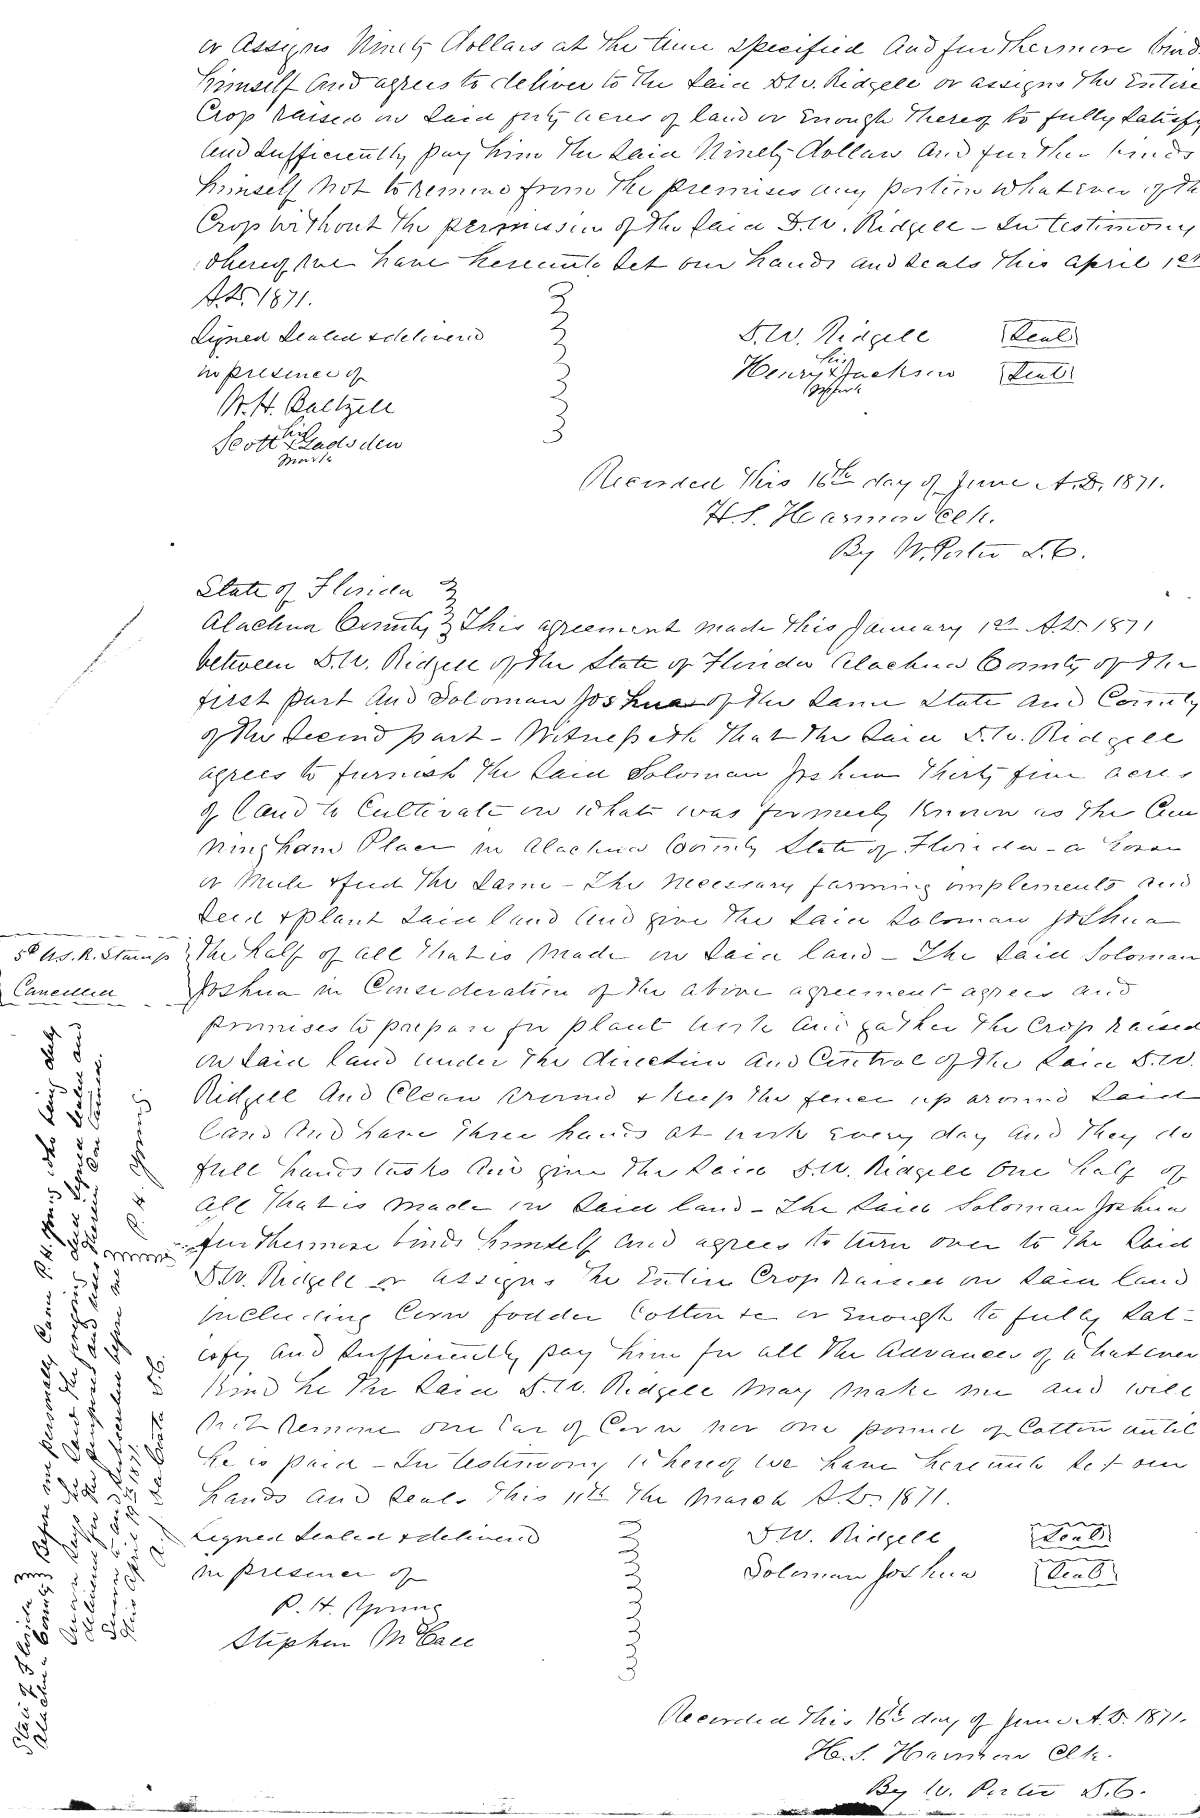 or assigns Ninety dollars at the time specified and furthermore binds
himself and agrees to deliver to the said D.W. Ridgell or assigns the Entire
Crop raised on said forty acres of land or Enough thereof to fully Satisfy
and Sufficiently pay him the said Ninety dollars and further binds
himself not to remove from the premises any portion whatever of the
Crop without the permission of the said D.W. Ridgell - In testimony
whereof we have hereunto Set our hands and seals this April 1st
A.D. 1871.
Signed Sealed & delivered
in presence of
W.H. Baltzell
Scott his x mark Gadsden
D.W. Ridgell Seal
Henry his x mark Jackson Seal
Recorded this 16th day of June A.D. 1871.
H.S. Harmon Clk.
By W. Porter D.C.
State of Florida
Alachua County This agreement made this January 1st A.D. 1871
between D.W. Ridgell of the State of Florida Alachua County of the
first part and Soloman Joshua of the Same State and County
of the Second part - Witnesseth that the said D.W. Ridgell
agrees to furnish the said Soloman Joshua Thirty five acres
of land to Cultivate on what was formerly Known as the Cun
ningham Place in Alachua County State of Florida - a horse
or Mule & feed the Same - the necessary farming implements and
Seed & plant said land and give the said Soloman Joshua
the half of all that is made on said land - The said Soloman
Joshua in Consideration of the above agreement agrees and
promises to prepare for plant work and gather the Crop raised
on said land under the direction and Control of the said D.W.
Ridgell and Clean around & keep the fence up around said
land and have three hands at work Every day and they do
full hands tasks and give the said D.W. Ridgell One half of
all that is made on said land - The said Soloman Joshua
furthermore binds himself and agrees to turn over to the said
D.W. Ridgell or assigns the Entire Crop raised on said land
including Corn fodder Cotton &c or Enough to fully Sat-
isfy and Sufficiently pay him for all the Advances of whatever
kind he the said D.W. Ridgell may make me and will
not remove one Ear of Corn nor one pound of Cotton until
he is paid - In testimony whereof we have hereunto Set our
hands and Seals this 11th the March A.D. 1871.
Signed Sealed & delivered
in presence of
P.H. Young
Stephen McCall
D.W. Ridgell Seal
Soloman Joshua Seal
Recorded this 16th day of June A.D. 1871.
H.S. Harmon Clk.
By W. Porter D.C.
5¢ U.S.R. Stamp
Cancelled
State of Florida
Alachua County Before me personally Came P.H. Young who being duly
Sworn Says he Saw the foregoing deed Signed Sealed and
delivered for the purposes and uses therein Contained.
Sworn to and subscribed before me P.H. Young
this April 19th 1871.
D.C.